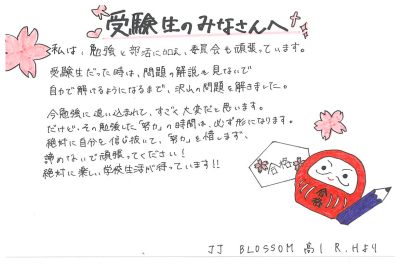 受験生のみなさんへ
私は、勉強と部活に加え、委員会も頑張っています。
受験生だった時は、問題の解説を見ないで
自力で解けるようになるまで、沢山の問題を解きました。
今勉強に追い込まれて、すごく大変だと思います。
だけど、その勉強した「努力」の時間は、必ず形になります。
絶対に自分を信じ抜いて、「努力」を惜しまず、
諦めないで頑張ってください！
絶対に楽しい学校生活が待っています!!
合格
合格
JJ BLOSSOM 高1 R.Hより